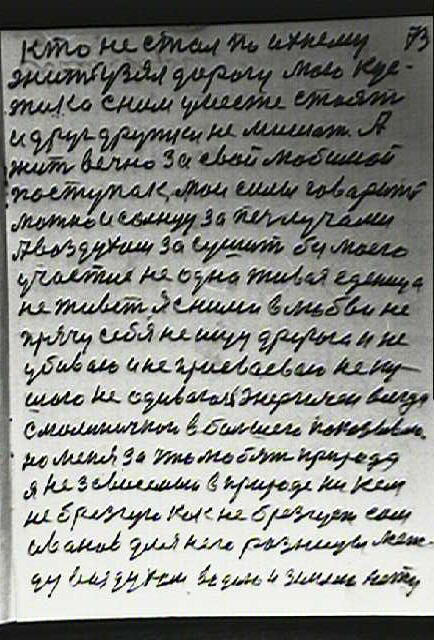 73
кто не стал по ихнему
жить взял дорогу мою
с ним умести стоят
и друг дружки не мишат. А
жит вечно за свой любимой
поступак, мои силы говарить
можно и солнцу за печ лучами
А воздухам за сушит бы моего
участие не одна живая еденица
не живет Я с ними в любви не
прячу себя не ищу другога и не
убиваю и не
шого не одиваюся Энергичен всегда
в большего
но меня за что любят природа
я не зависемый в природе ни кем
не брезгую как не брезгует сам
Иванов для него разницы меж-
ду воздухам водою и землею нету